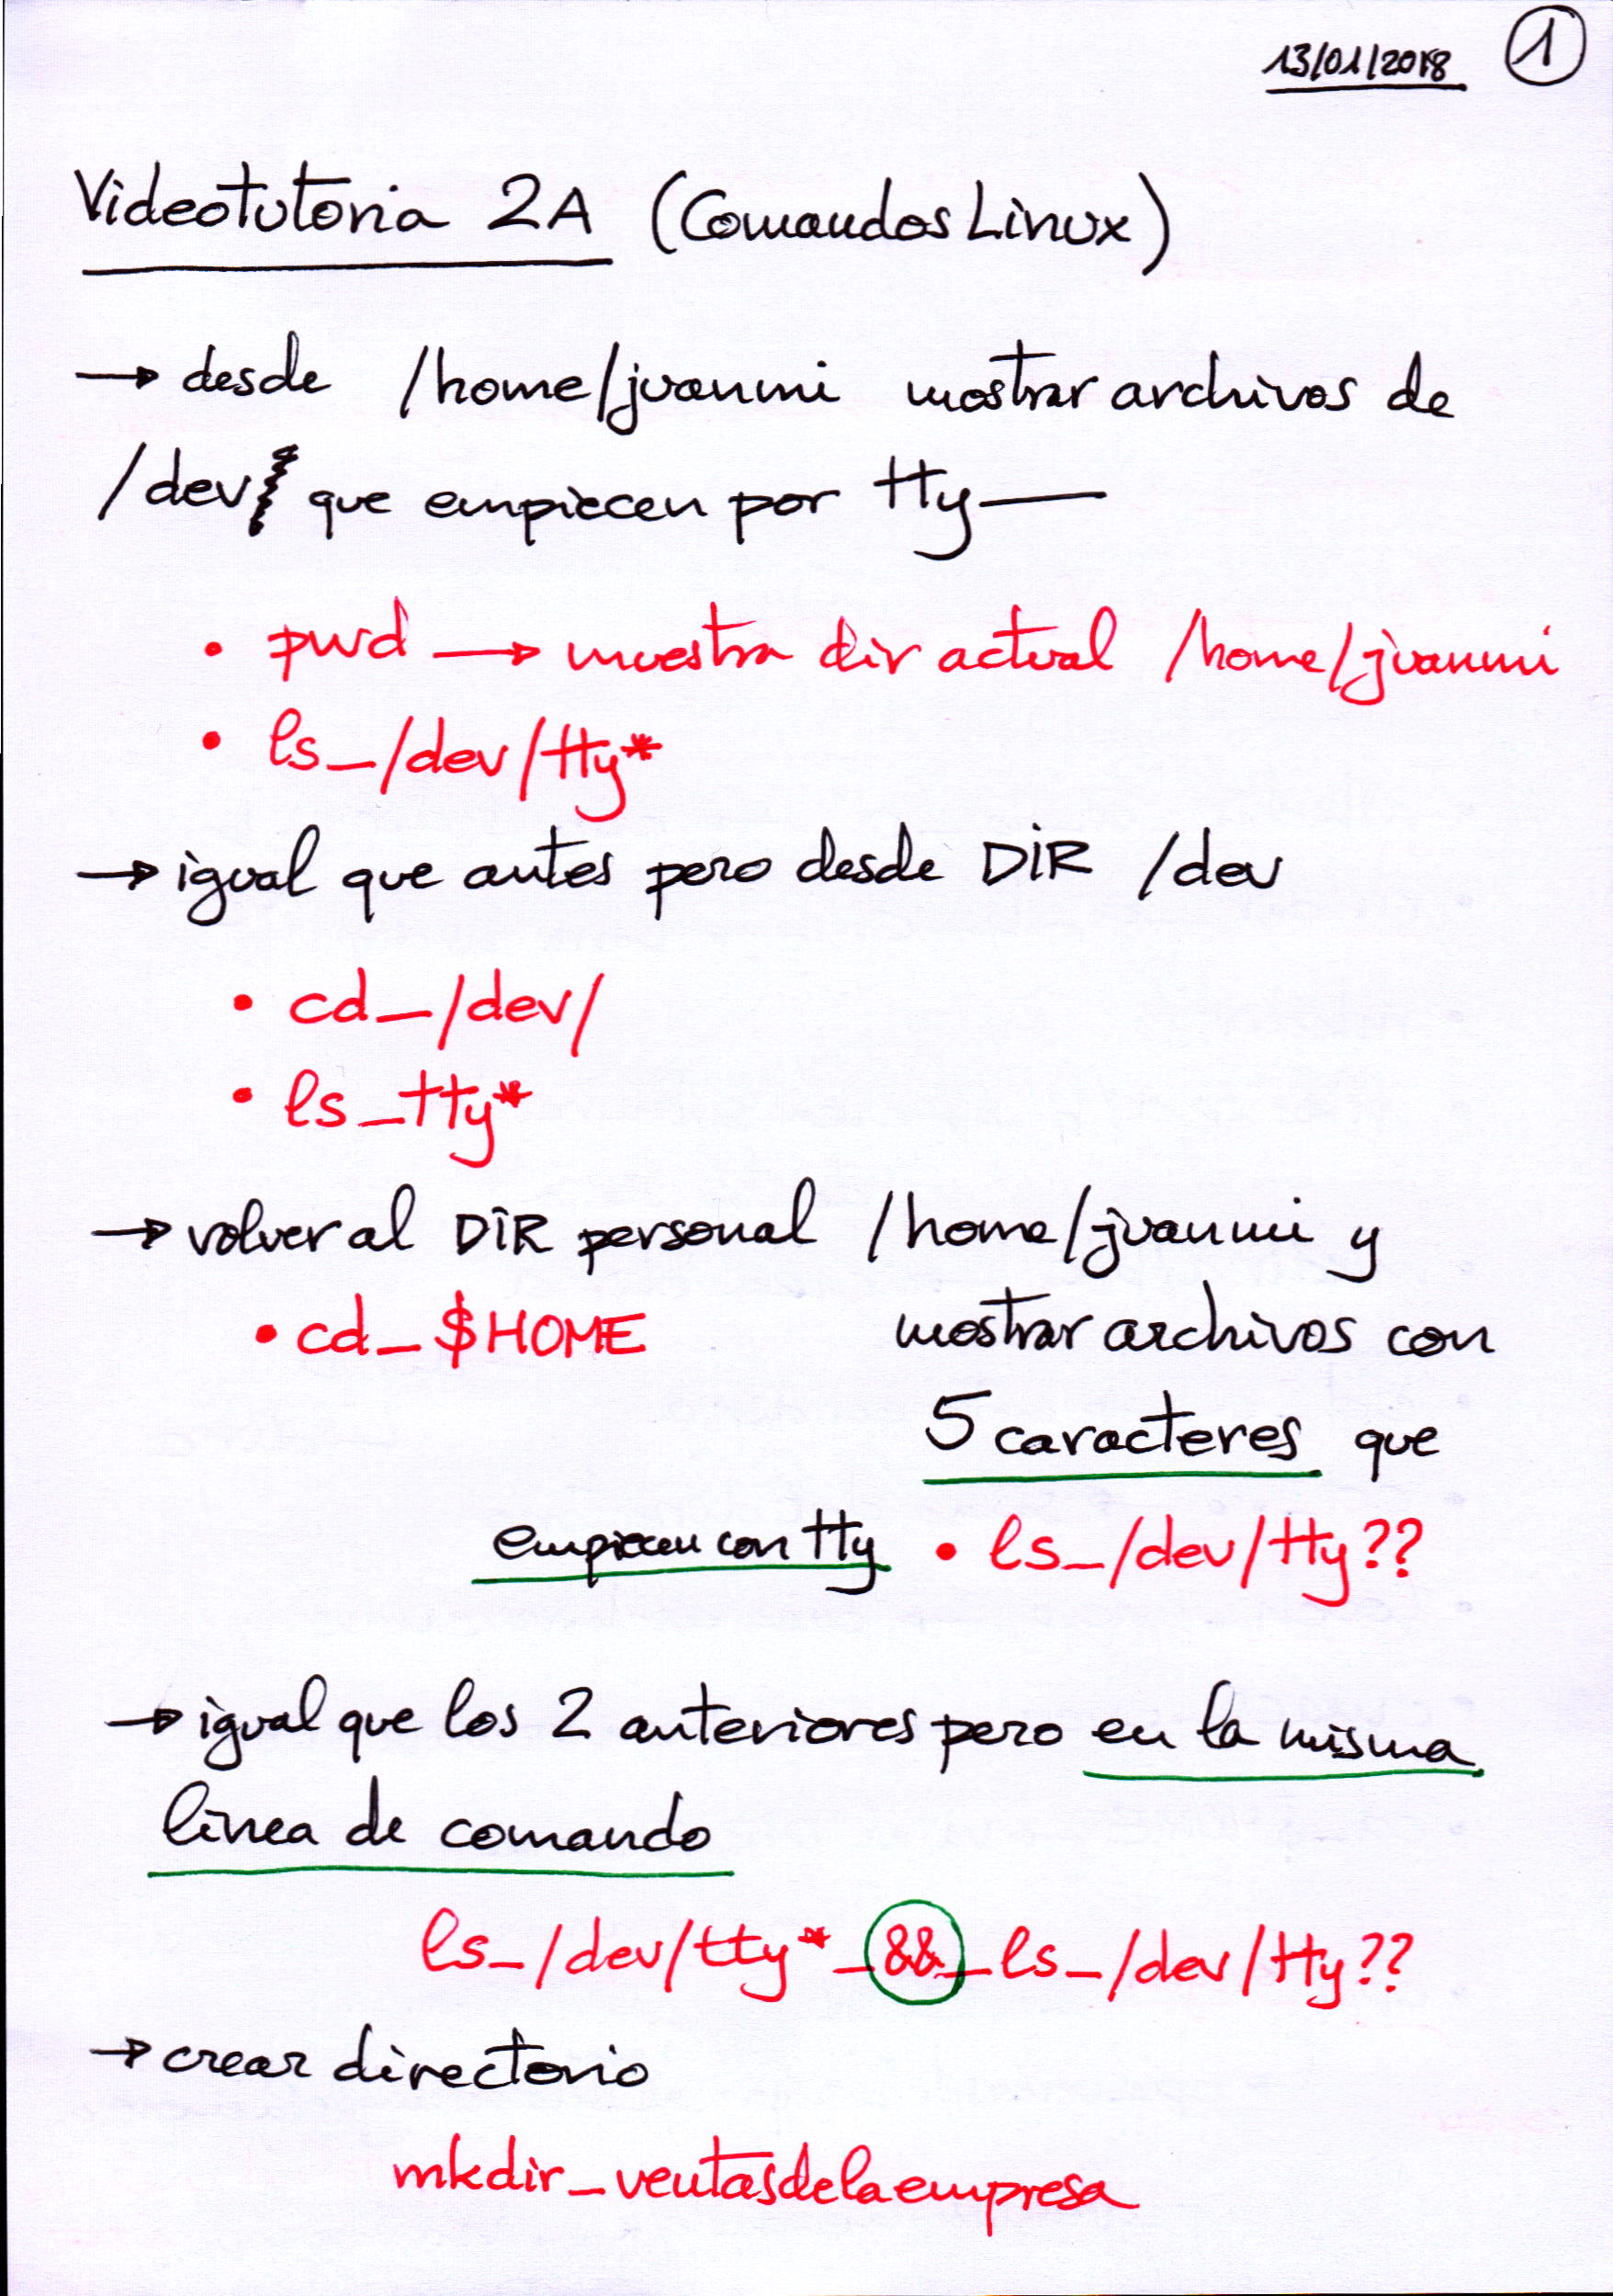 13/01/2018 1
Videotutoria 2A (Comandos Linux)
→ desde /home/juanmi mostrar archivos de
/dev que empiecen por tty—
• pwd → muestra dir actual /home/juanmi
• ls_/dev/tty*
→ igual que antes pero desde DIR /dev
• cd_/dev/
• ls_tty*
→ volver al DIR personal /home/juanmi y
• cd_$HOME mostrar archivos con
5 caracteres que
empiecen con tty • ls_/dev/tty??
→ igual que los 2 anteriores pero en la misma
línea de comando
ls_/dev/tty*_&&_ls_/dev/tty??
→ crear directorio
mkdir_ventasdelaempresa